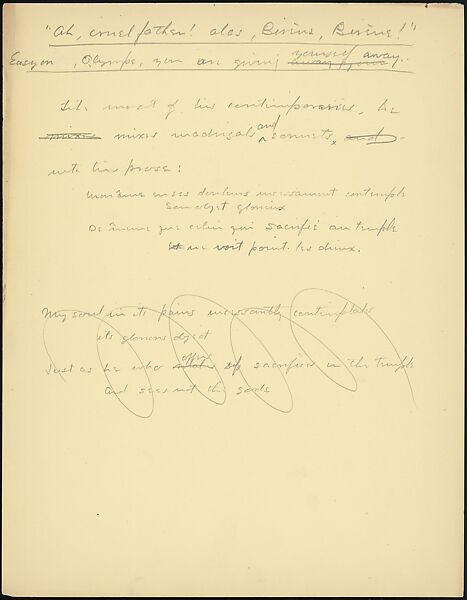 "Ah, cruel father! alas, Birène, Birène!"
Easy on, Olympe, you are giving yourself away.
Like most of his contemporaries, he
mixes mixes madrigals and sonnets, and
with his prose:
Mon âme en ses douleurs incessament contemple
Son objet glorieux
De même que celui qui sacrifie au temple
Et ne voit point les dieux.
My soul in its pains incessantly contemplates
its glorious object
Just as he who offers up sacrifices in the temple
and sees not the gods